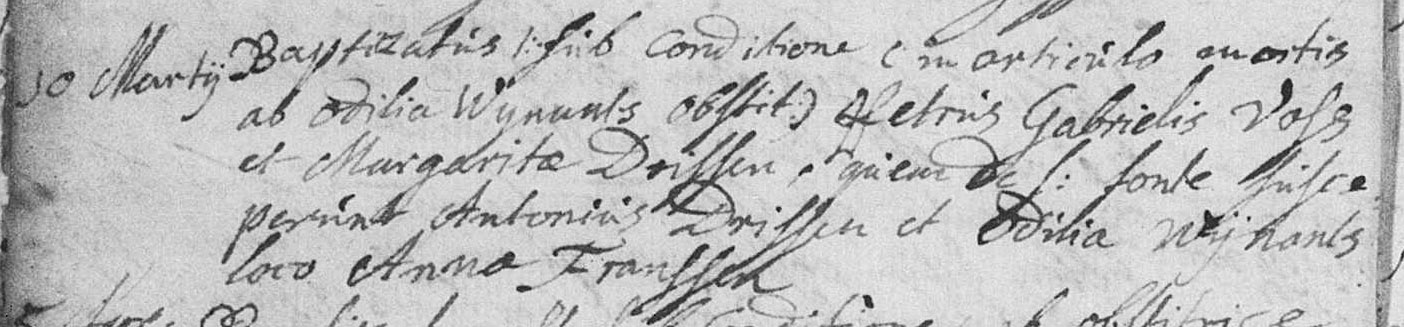 10 Martÿ Baptizatus /: sub conditione ( in articulo mortis
ab Odilia Wynants obstit:) Petrus Gabrielis Voss
et Margaritæ Drissen, quem de S: fonte susce
perunt Antonius Drissen et Odilia Wÿnants
loco Anna Franssen
conditione ab obstitrice